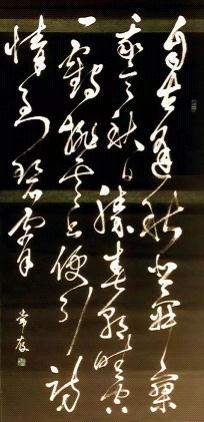 自古逢秋悲寂寥
我言秋日勝春朝晴空
一鶴排雲上便引詩
情到碧霄
常友